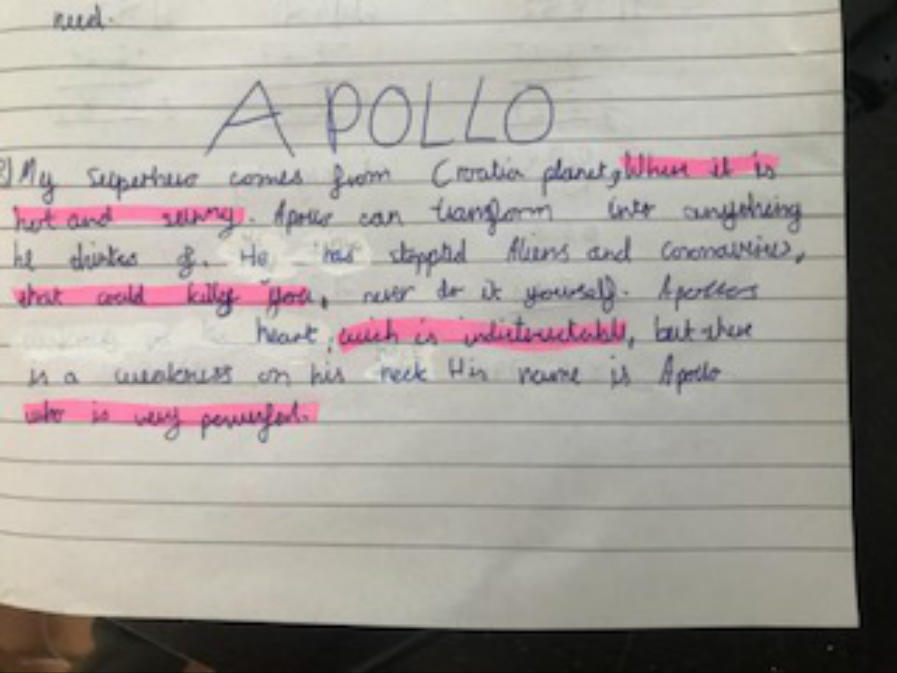 need.
APOLLO
My Superhero comes from Croatia planet, Where it is
hot and sunny. Apollo can transform into anything
he thinks of. He has stopped Aliens and coronavirus,
that could killy you, never do it yourself. Apollos
heart, wich is indistructable, but there
is a weakness on his neck His name is Apollo
who is very powerfool.